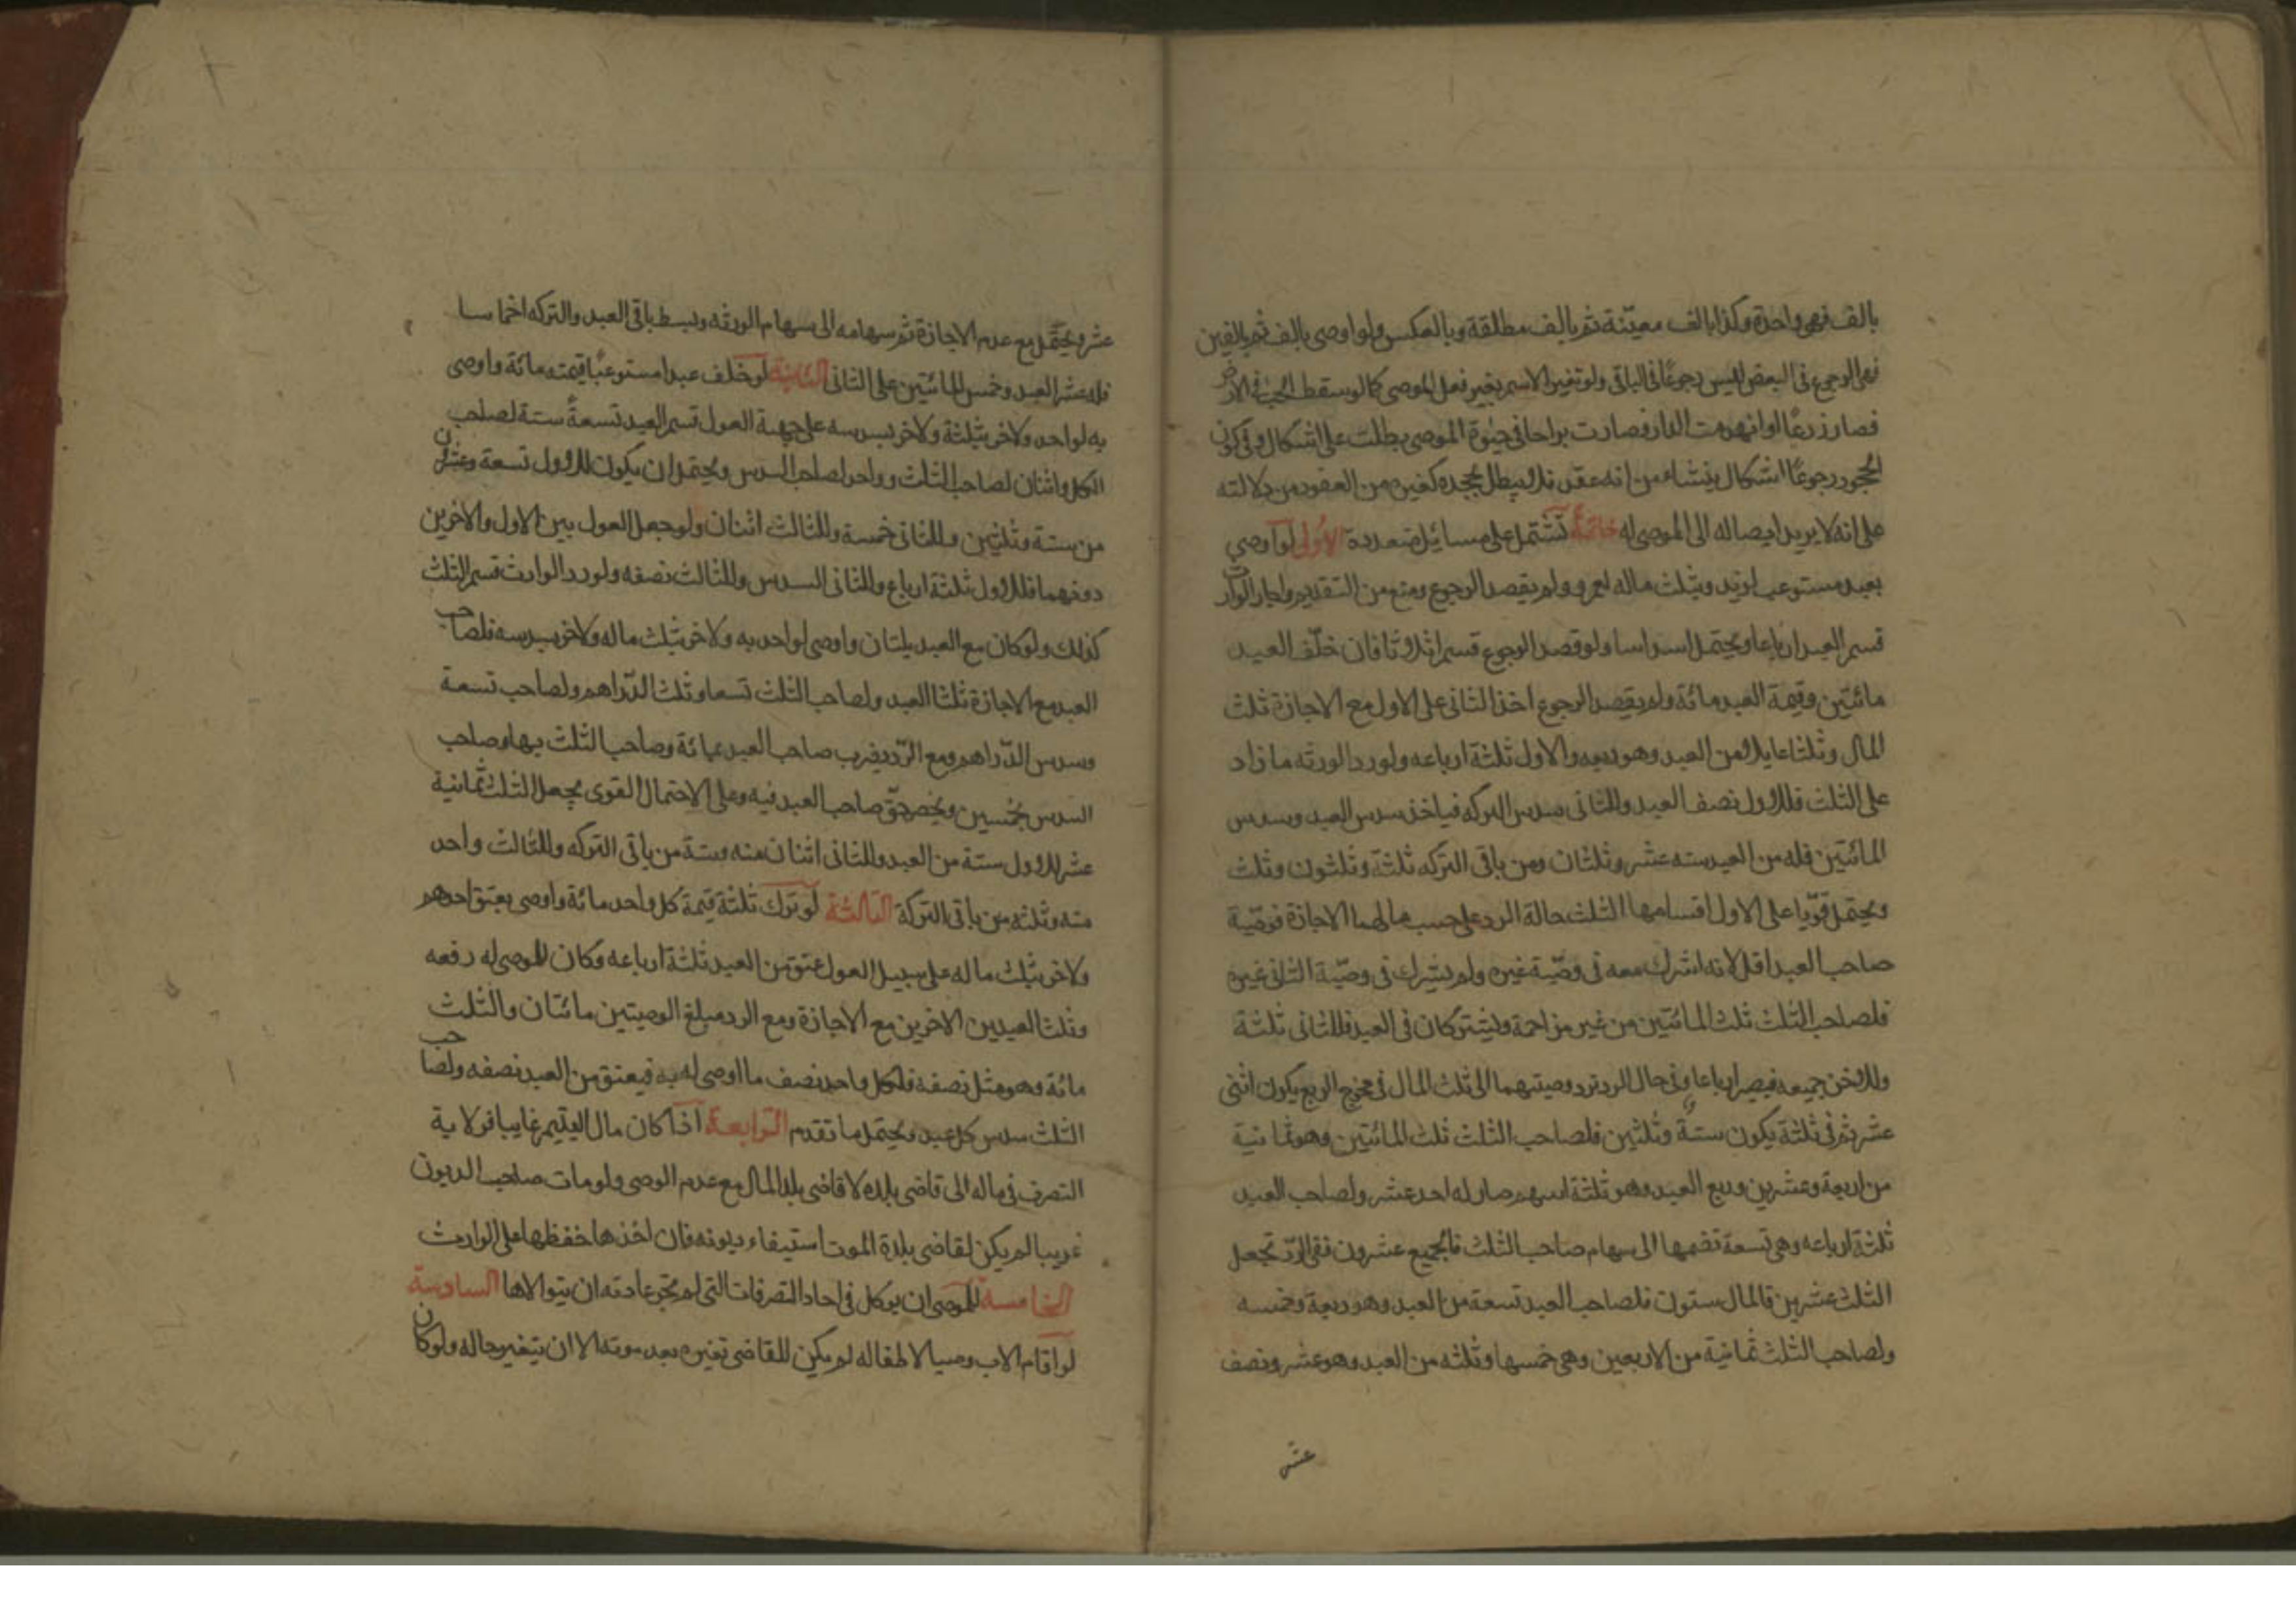 بالف فهى واحدة وكذا بالف معيّنة ثم بالف مطلقة وبالعكس ولو اوصى بالف ثم بالفين
ففى الرجوع فى البعض ليس رجوعًا فى الباقى ولو تغير الاسم بغير فعل الموصى كما لو سقط الحب فى الارض
فصار زرعًا او انهدمت الدار فصارت براحا فى حيوة الموصى بطلت على اشكال وفى كون
الجحود رجوعًا اشكال ينشاء من انه عقد فلا يبطل بجحده كغيره من العقود من دلالته
على انه لا يريد ايصاله الى الموصى له خاتمة تشتمل على مسائل متعددة الاولى لو اوصي
بعبد مستوعب لزيد وبثلث ماله لعمرو ولم يقصد الرجوع ومنع من التقديم واجاز الوارث
قسم العبد ارباعا ويحتمل اسداسا ولو قصد الرجوع قسم اثلاثا فان خلّف العبد
مائتين وقيمة العبد مائة ولم يقصد الرجوع اخذ الثانى على الاول مع الاجازة ثلث
المال وثلثا من العبد وهو ربعه والاول ثلثة ارباعه ولو رد الورثه ما زاد
على الثلث فللاول نصف العبد وللثانى سدس التركه فياخذ سدس العبد وسدس
المائتين فله من العبد سته عشر وثلثان ومن باقى التركه ثلثة وثلثون وثلث
ويحتمل قويّا على الاول اقسامهما الثلث حالة الرد على حسب مالهما الاجازة فوصّية
صاحب العبد اقل لانه اشرك معه فى وصّية غيره ولم يشرك فى وصّية الثانى غيره
فلصاحب الثلث ثلث المائتين من غير مزاحمة ويشتركان فى العبد فللثانى ثلثة
وللاخر جميعه فيصير ارباعا وفى حال الرد ترد وصيتهما الى ثلث المال فى مخرج الربع يكون اثنى
عشر ثم فى ثلثة يكون ستةً وثلثين فلصاحب الثلث ثلث المائتين وهو ثمانية
من اربعة وعشرين وربع العبد وهو ثلثة اسهم صار له احد عشر ولصاحب العبد
ثلثة ارباعه وهى تسعة تضمها الى سهام صاحب الثلث فالجميع عشرون ففى الرّد تجعل
الثلث عشرين فالمال ستون فلصاحب العبد تسعة من العبد وهو ربعة وخمسه
ولصاحب الثلث ثمانية من الاربعين وهى خمسها وثلثه من العبد وهو عشر ونصف
عشر
عشر ويحتمل مع عدم الاجازة ثم سهامه الى سهام الورثه وبسط باقى العبد والتركه اخماسا
فله عشر العبد وخمس المائتين على الثانى الثانية لو خلف عبدا مستوعبًا قيمته مائة واوصى
به لواحد ولاخر بثلثة ولاخر بسدسه على جهة العول قسم العبد تسعةً ستة لصاحب
الكل واثنان لصاحب الثلث وواحد لصاحب السدس ويحتمل ان يكون للاول تسعة وعشرون
من ستة وثلثين وللثانى خمسة وللثالث اثنان ولو جعل العول بين الاول والاخرين
دونهما فللاول ثلثة ارباع وللثانى السدس وللثالث نصفه ولو رد الوارث قسم الثلث
كذلك ولو كان مع العبد واوصى لواحد به ولاخر بثلث ماله ولاخر بسدسه فلصاحب
العبد مع الاجازة ثلثا العبد ولصاحب الثلث تسعا وثلث الدّراهم ولصاحب تسعة
وسدس الدّراهم ومع الرّد يضرب صاحب العبد بمائة وصاحب الثلث بها وصاحب
السدس بخمسين ويخص حقّ صاحب العبد فيه وعلى الاحتمال القوى يجعل الثلث ثمانية
عشر للاول ستة من العبد وللثانى اثنان منه وستة من باقى التركه وللثالث واحد
منه وثلثه من باقى التركة الثالثة لو ترك ثلثة قيمة كل واحد مائة واوصى بعتق احدهم
ولاخر بثلث ماله على سبيل العول عتق من العبد ثلثة ارباعه وكان للموصى له ربعه
وثلث العبدين الاخرين مع الاجازة ومع الرد مبلغ الوصيتين مائتان والثلث
مائة وهو مثل نصفه فلكل واحد نصف ما اوصى له به فيعتق من العبد نصفه ولصاحب
الثلث سدس كل عبد ويحتمل ما تقدم الرّابعة اذا كان مال اليتيم غايبا فولاية
التصرف فى ماله الى قاضى بلده لا قاضى بلد المال مع عدم الوصى ولو مات صاحب الديون
غريبا لم يكن لقاضى بلدة الموت استيفاء ديونه فان اخذها حفظها على الوارث
الخامسة للموصى ان يوكل فى احاد التصرفات التى لم تجر عادته ان يتولاها السادسة
لو اقام الاب وصيا لاطفاله لم يكن للقاضى تغيره بعد موته الا ان يتغير حاله ولو كان